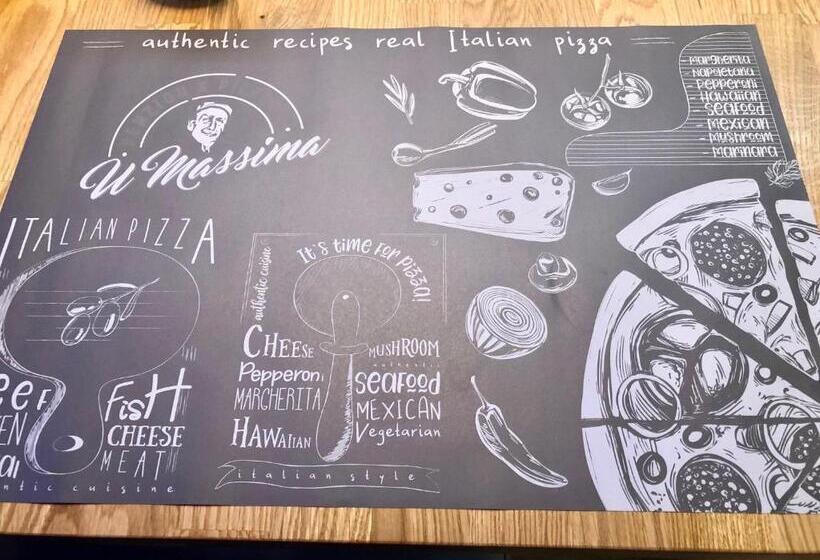 authentic recipes real Italian pizza
U Massima
- Margherita
- Napoletana
- Pepperoni
- Hawaiian
- Seafood
- Mexican
- Mushroom
- Marinara
ITALIAN PIZZA
FisH
CHEESE
MEAT
cuisine
It's time for pizza!
authentic cuisine
CHEESE
Pepperoni
MARGHERITA
HAWAIIAN
MUSHROOM
authentic
Seafood
MEXICAN
Vegetarian
italian style